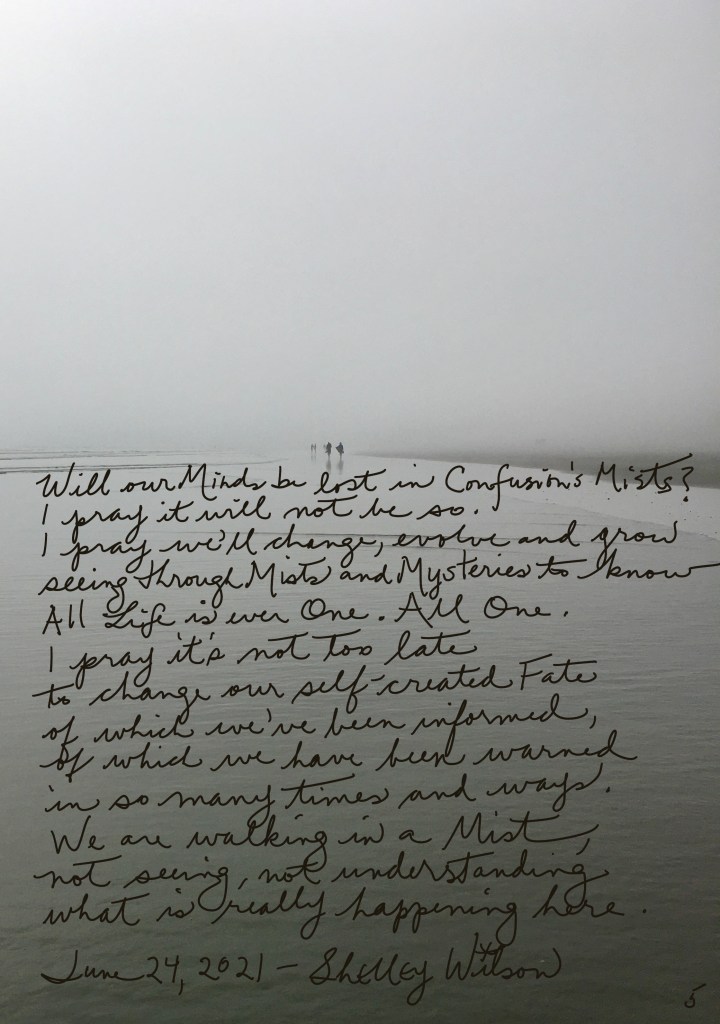 Will our Minds be lost in Confusion's Mists?
I pray it will not be so.
I pray we'll change, evolve and grow
seeing through Mists and Mysteries to know
All Life is ever One. All One.
I pray it's not too late
to change our self-created Fate
of which we've been informed,
of which we have been warned
in so many times and ways.
We are walking in a Mist,
not seeing, not understanding
what is really happening here.
June 24, 2021 - Shelley Wilson
5